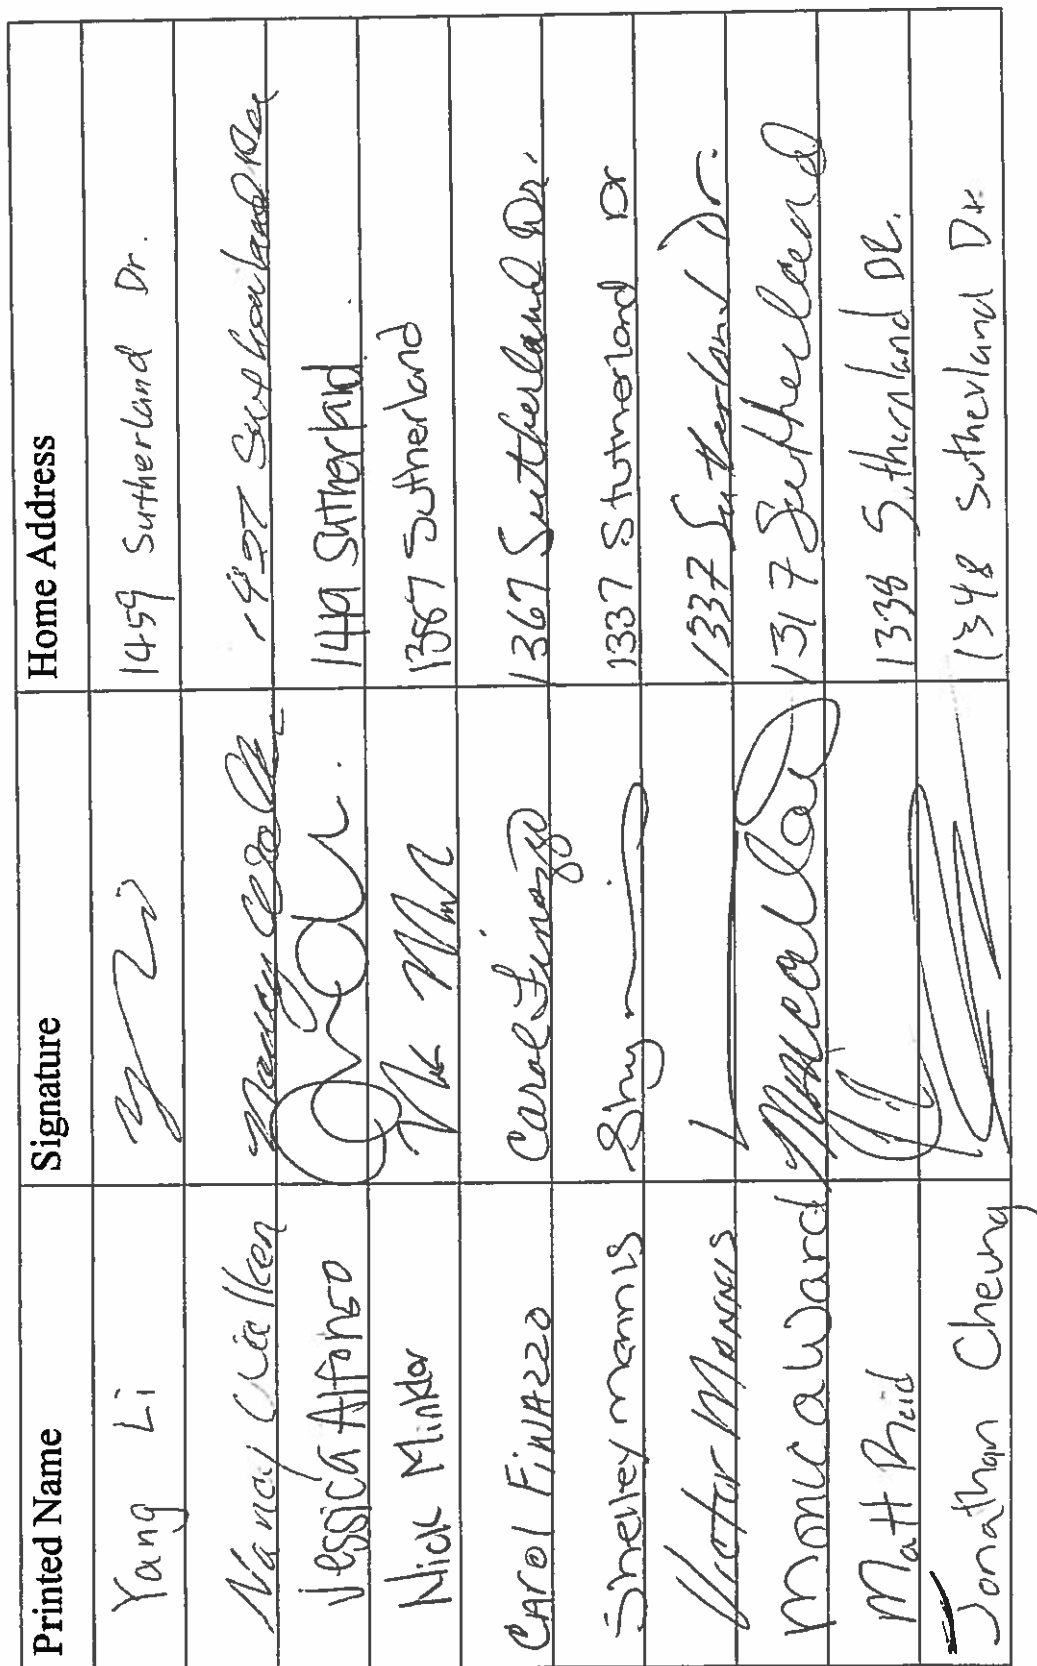 Printed Name Signature Home Address
Yang Li 1459 Sutherland Dr.
Nancy Walker Nancy 1427 Sutherland
Jessica Alfonso 1419 Sutherland
Nick Minkler 1387 Sutherland
CArol FiNAzzo Carol Finazzo 1367 Sutherland Dr.
Shelley Mannis 1337 Stutherland Dr
Victor Mannis 1337 Sutherland Dr.
Monica Ward Monica 1317 Sutherland
Matt Reid 1338 Sutherland DR.
Jonathan Cheung 1348 Sutherland Dr.